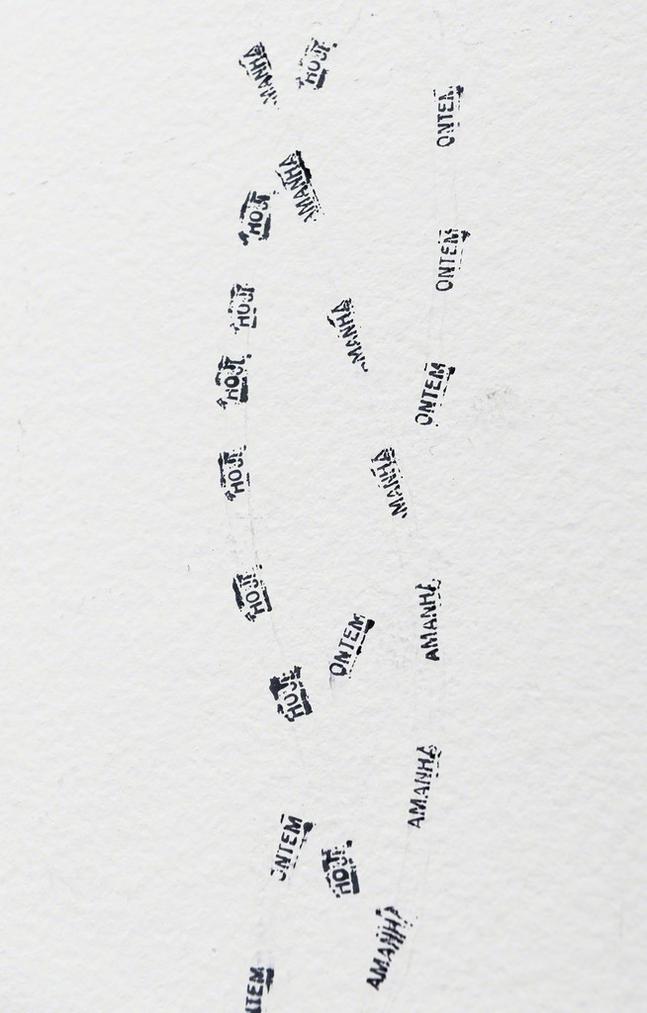 MANHÃ
HOJE
ONTEM
MANHÃ
HOJE
ONTEM
HOJE
MANHÃ
HOJE
ONTEM
HOJE
MANHÃ
HOJE
AMANHÃ
ONTEM
HOJE
AMANHÃ
ONTEM
HOJE
AMANHÃ
NTEM